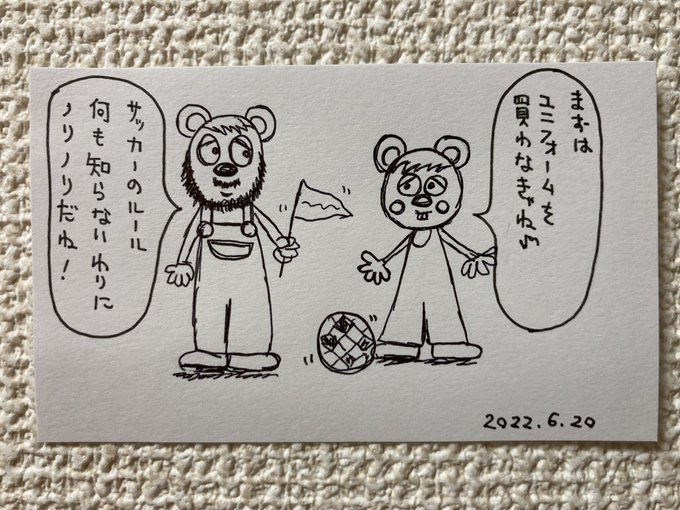 まずは
ユニフォームを
買わなきゃね♪
サッカーのルール
何も知らないわりに
ノリノリだね!
2022.6.20